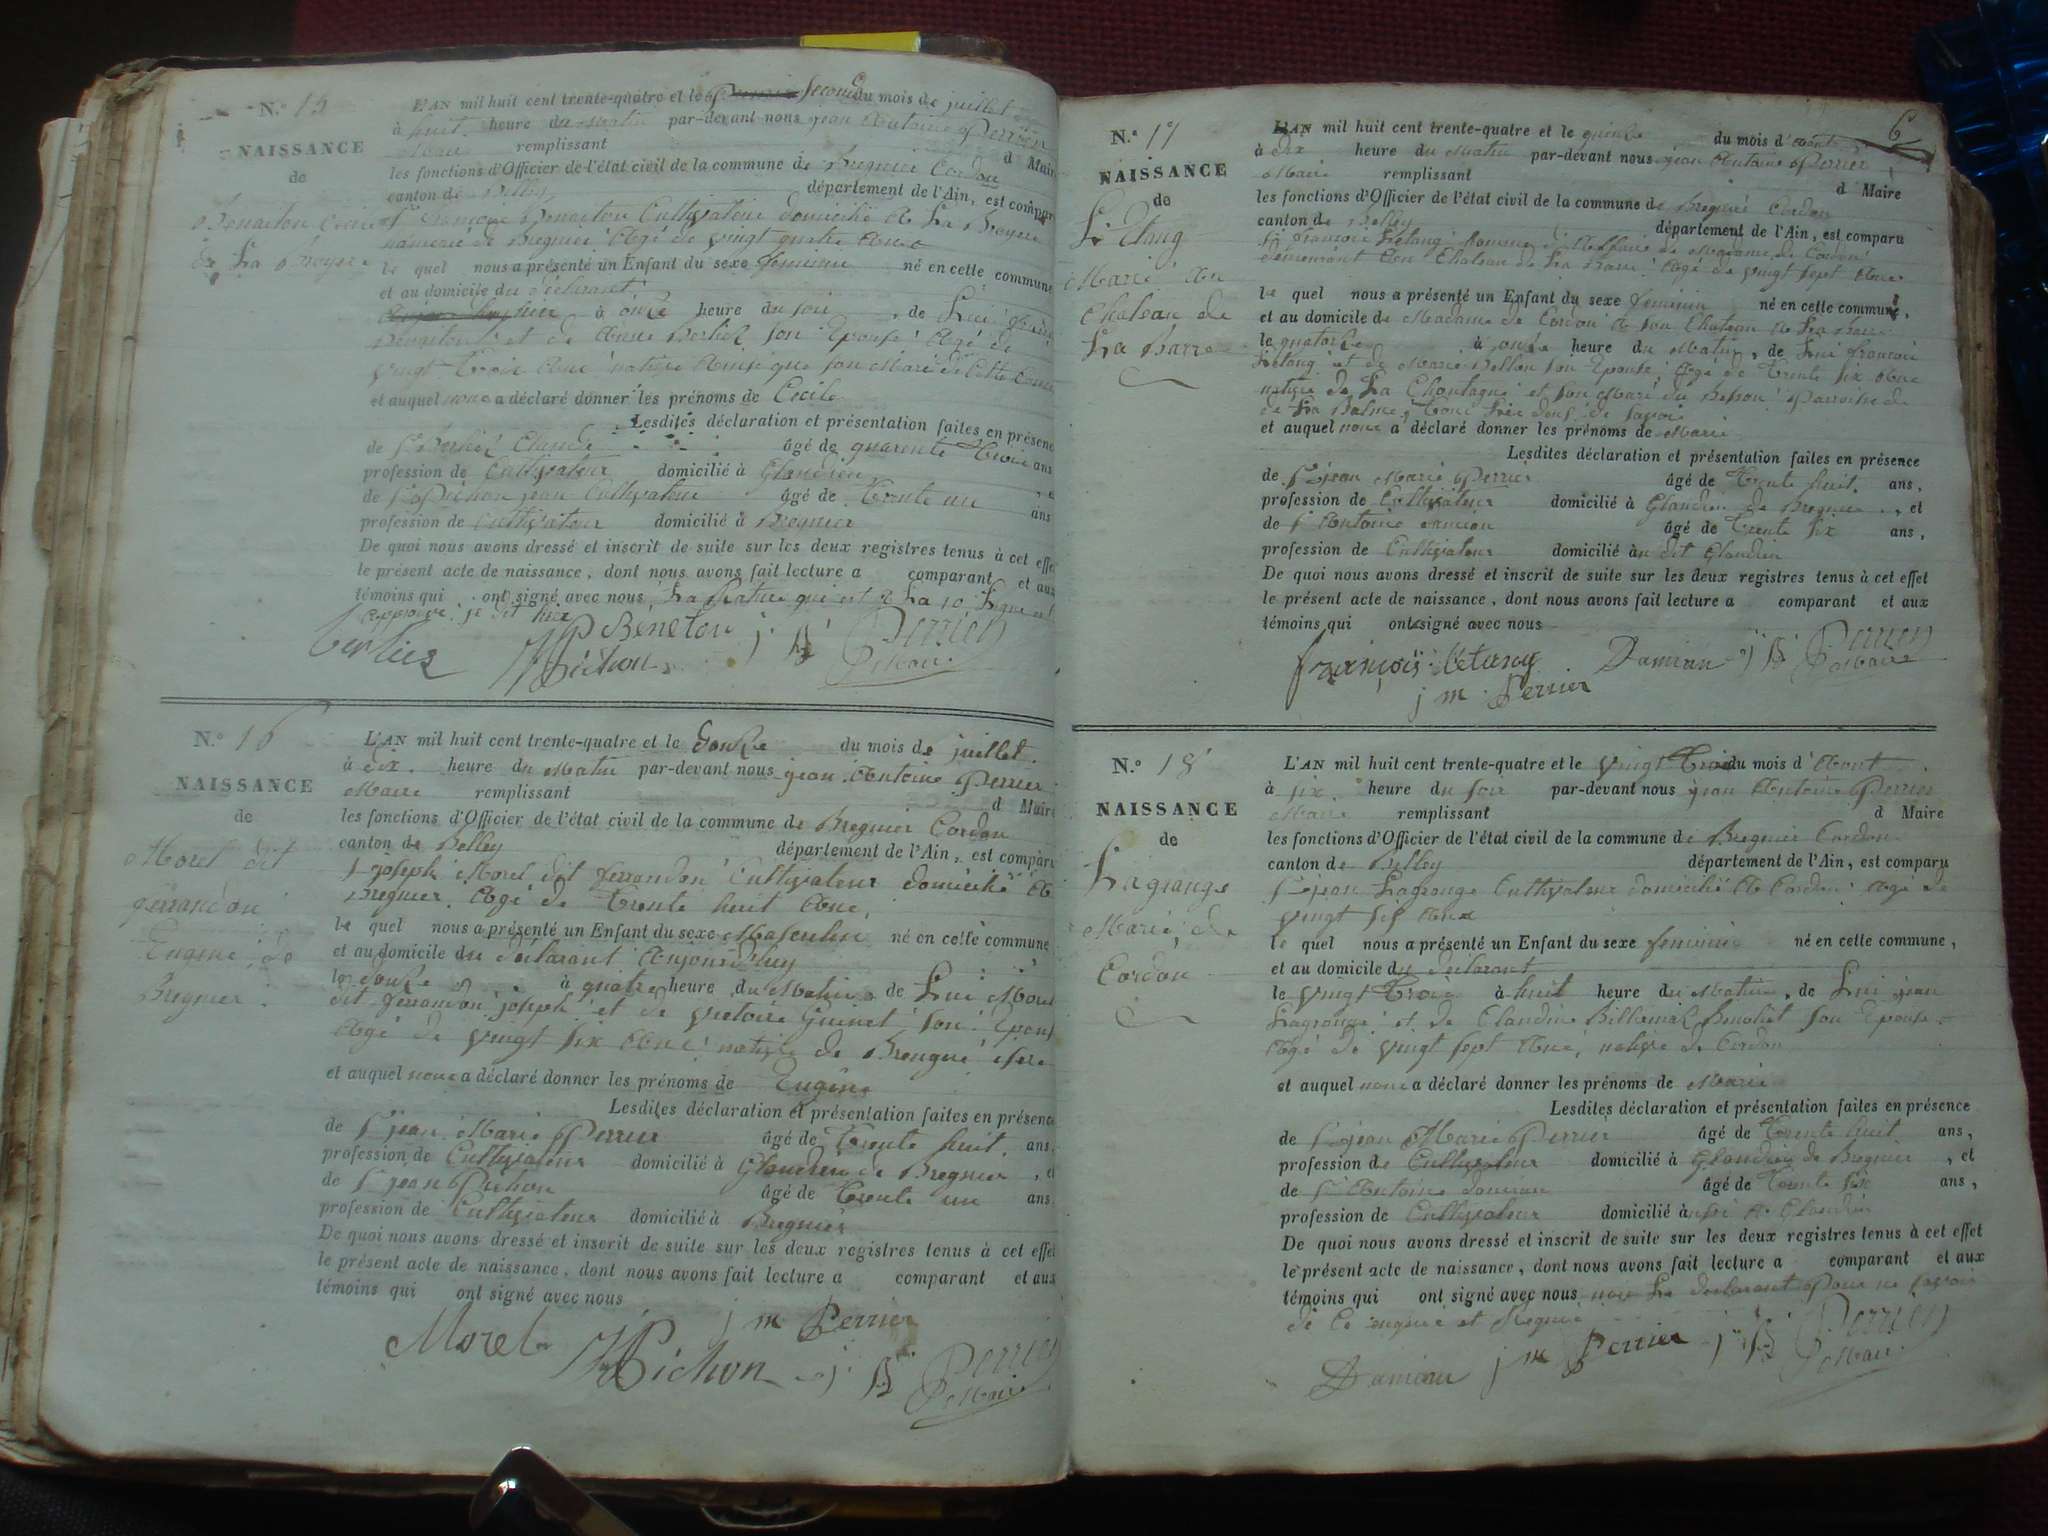 N.° 15
NAISSANCE
de
Benaiton Cecile
de La Bruyere
L'AN mil huit cent trente-quatre et le second du mois de juillet
à huit heure du matin par-devant nous jean Antoine Perrier
Maire remplissant d Maire
les fonctions d'Officier de l'état civil de la commune de Bregnier Cordon
canton de Belley département de l'Ain, est comparu
Benaiton Cultivateur domicilié A La Bruyere
de Bregnier Agé de vingt quatre Ans
le quel nous a présenté un Enfant du sexe feminin né en cette commune
et au domicile du déclarant
hier à onze heure du soir, de Lui
et de Berlioz son Epouse Agé de
vingt trois Ans native Ainsi que son Mari de Cette Comune
et auquel nous a déclaré donner les prénoms de Cecile
Lesdites déclaration et présentation faites en présence
de Sr Berlioz Claude âgé de quarente trois ans
profession de Cultivateur domicilié à Glandieu
de Sr Pichon jean Cultivateur âgé de trente un ans
profession de Cultivateur domicilié à Bregnier
De quoi nous avons dressé et inscrit de suite sur les deux registres tenus à cet effet
le présent acte de naissance, dont nous avons fait lecture a comparant et aux
témoins qui ont signé avec nous, La Rature qui est A La 10 Ligne est
approuvé je dit hier
Berlioz Beneton Pichon j A Perrier
Maire
N.° 16
NAISSANCE
de
Morel dit
ferrandon
Eugene de
Bregnier
L'AN mil huit cent trente-quatre et le Douze du mois de juillet
à dix heure du Matin par-devant nous jean Antoine Perrier
Maire remplissant d Maire
les fonctions d'Officier de l'état civil de la commune de Bregnier Cordon
canton de Belley département de l'Ain, est comparu
Sr joseph Morel dit ferrandon Cultivateur domicilié A
Bregnier Agé de Trente huit Ans,
le quel nous a présenté un Enfant du sexe Masculin né en cette commune
et au domicile du déclarant Aujourd'huy
le douze à quatre heure du Matin de Lui Morel
dit ferrandon joseph et de victoire Guinet son Epouse
Agé de vingt six Ans native de Brangue isere
et auquel nous a déclaré donner les prénoms de Eugene
Lesdites déclaration et présentation faites en présence
de Sr jean Marie Perrier âgé de Trente huit ans,
profession de Cultivateur domicilié à Glandieu de Bregnier, et
de Sr jean Pichon âgé de trente un ans
profession de Cultivateur domicilié à Bregnier
De quoi nous avons dressé et inscrit de suite sur les deux registres tenus à cet effet
le présent acte de naissance, dont nous avons fait lecture a comparant et aux
témoins qui ont signé avec nous
Morel Pichon j m Perrier j A Perrier
Maire
6
N.° 17
NAISSANCE
de
L'Etang
Marie Au
Chateau de
La Barre
L'AN mil huit cent trente-quatre et le quinze du mois d'Aout
à dix heure du Matin par-devant nous jean Antoine Perrier
Maire remplissant d Maire
les fonctions d'Officier de l'état civil de la commune de Bregnier Cordon
canton de Belley département de l'Ain, est comparu
Sr françois Létang homme d'Affaire de Madame de Cordon
demeurant Au Chateau de La Barre Agé de vingt sept Ans
le quel nous a présenté un Enfant du sexe feminin né en cette commune,
et au domicile de Madame de Cordon A son Chateau de La Barre
le quatorze à onze heure du Matin, de Lui françois
Létang et de Marie Bellon son Epouse Agé de Trente six Ans
native de La Chautagne et son Mari du Parroisse de
de La Balme, de Savoie
et auquel nous a déclaré donner les prénoms de Marie
Lesdites déclaration et présentation faites en présence
de Sr jean Marie Perrier âgé de Trente huit ans,
profession de Cultivateur domicilié à Glandieu de Bregnier, et
de Sr Antoine Damian âgé de Trente six ans,
profession de Cultivateur domicilié au dit Glandieu
De quoi nous avons dressé et inscrit de suite sur les deux registres tenus à cet effet
le présent acte de naissance, dont nous avons fait lecture a comparant et aux
témoins qui ont signé avec nous
françois létang Damian j A Perrier
j m Perrier Maire
N.° 18
NAISSANCE
de
Lagrange
Marie de
Cordon
L'AN mil huit cent trente-quatre et le vingt Trois du mois d'Aout
à six heure du soir par-devant nous jean Antoine Perrier
Maire remplissant d Maire
les fonctions d'Officier de l'état civil de la commune de Bregnier Cordon
canton de Belley département de l'Ain, est comparu
Sr jean Lagrange Cultivateur domicilié A Cordon Agé de
vingt six Ans
le quel nous a présenté un Enfant du sexe feminin né en cette commune,
et au domicile du declarant
le vingt Trois à huit heure du Matin, de Lui jean
Lagrange et de Claudine Billemaz Benoliet son Epouse
Agé de vingt sept Ans, native de Cordon
et auquel nous a déclaré donner les prénoms de Marie
Lesdites déclaration et présentation faites en présence
de Sr jean Marie Perrier âgé de Trente huit ans,
profession de Cultivateur domicilié à Glandieu de Bregnier, et
de Sr Antoine Damian âgé de Trente six ans,
profession de Cultivateur domicilié à Glandieu
De quoi nous avons dressé et inscrit de suite sur les deux registres tenus à cet effet
le présent acte de naissance, dont nous avons fait lecture a comparant et aux
témoins qui ont signé avec nous non Le declarant Pour ne savoir
de Ce enquis et Requis
Damian j m Perrier j A Perrier
Maire